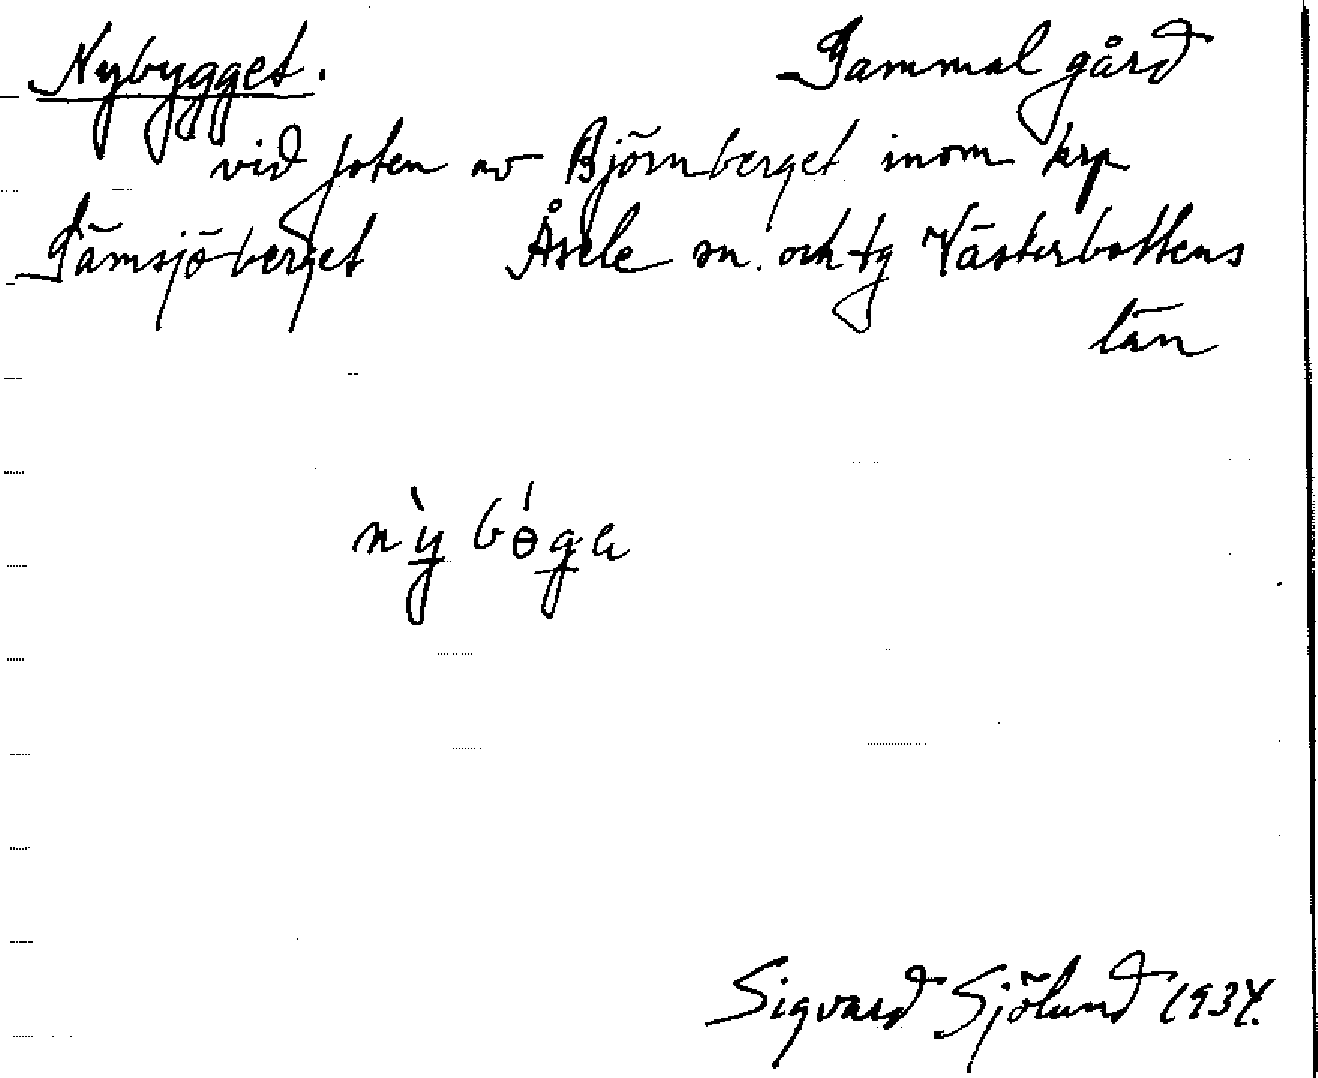 Nybygget. Gammal gård
vid foten av Björnberget inom krp
Tämsjöberget Åsele sn. och tg Västerbottens
län
nỳ bǿga
Sigvard Sjölund 1934.